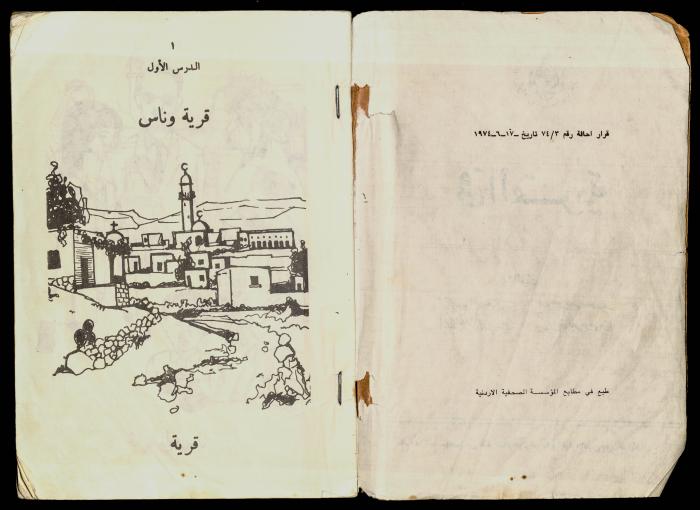 قرار احالة رقم ٧٤/٣ تاريخ ١٧-٦-١٩٧٤
طبع في مطابع المؤسسة الصحفية الاردنية
١
الدرس الأول
قرية وناس
قرية